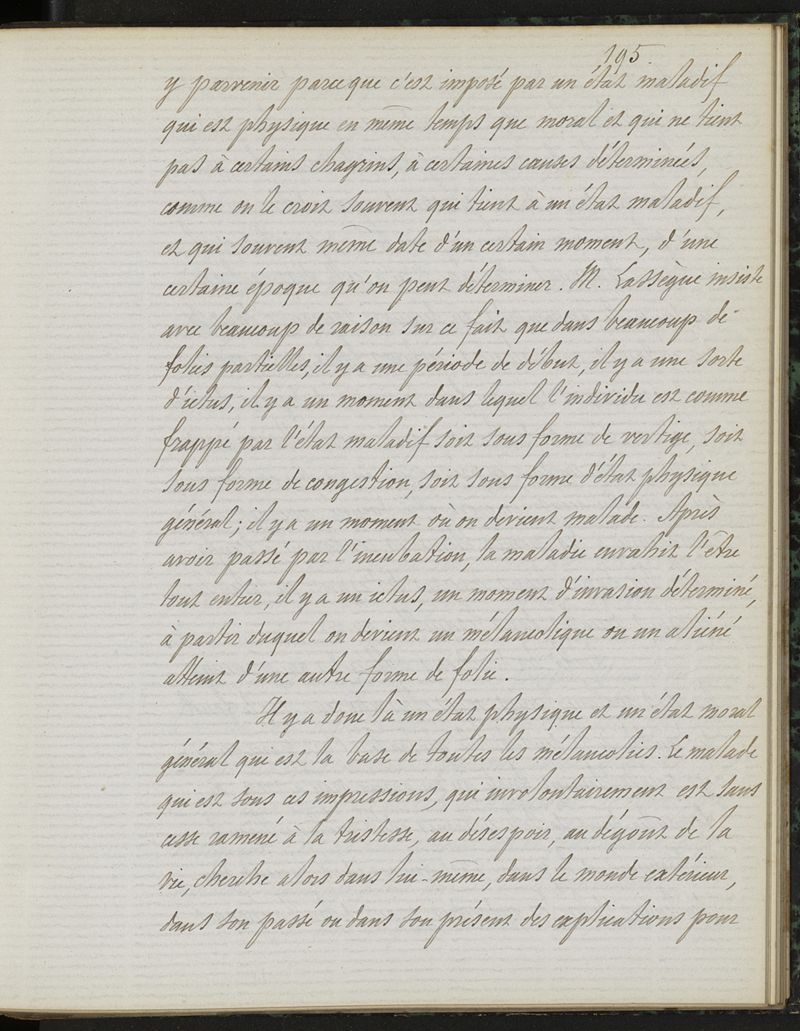 195
y parvenir parce que c'est imposé par un état maladif
qui est physique en même temps que moral et qui ne tient
pas à certains chagrins, à certaines causes déterminées,
comme on le croit souvent qui tient à un état maladif,
et qui souvent même date d'un certain moment, d'une
certaine époque qu'on peut déterminer. M. Lassègue insiste
avec beaucoup de raison sur ce fait que dans beaucoup de
folies partielles, il y a une période de début, il y a une sorte
d'ictus, il y a un moment dans lequel l'individu est comme
frappé par l'état maladif soit sous forme de vertige, soit
sous forme de congestion, soit sous forme d'état physique
général; il y a un moment où on devient malade. Après
avoir passé par l'incubation, la maladie envahit l'être
tout entier, il y a un ictus, un moment d'invasion déterminé,
à partir duquel on devient un mélancolique ou un aliéné
atteint d'une autre forme de folie.
Il y a donc là un état physique et un état moral
général qui est la base de toutes les mélancolies. Le malade
qui est sous ces impressions, qui involontairement est sans
cesse ramené à la tristesse, au désespoir, au dégoût de la
vie, cherche alors dans lui-même, dans le monde extérieur,
dans son passé ou dans son présent des explications pour